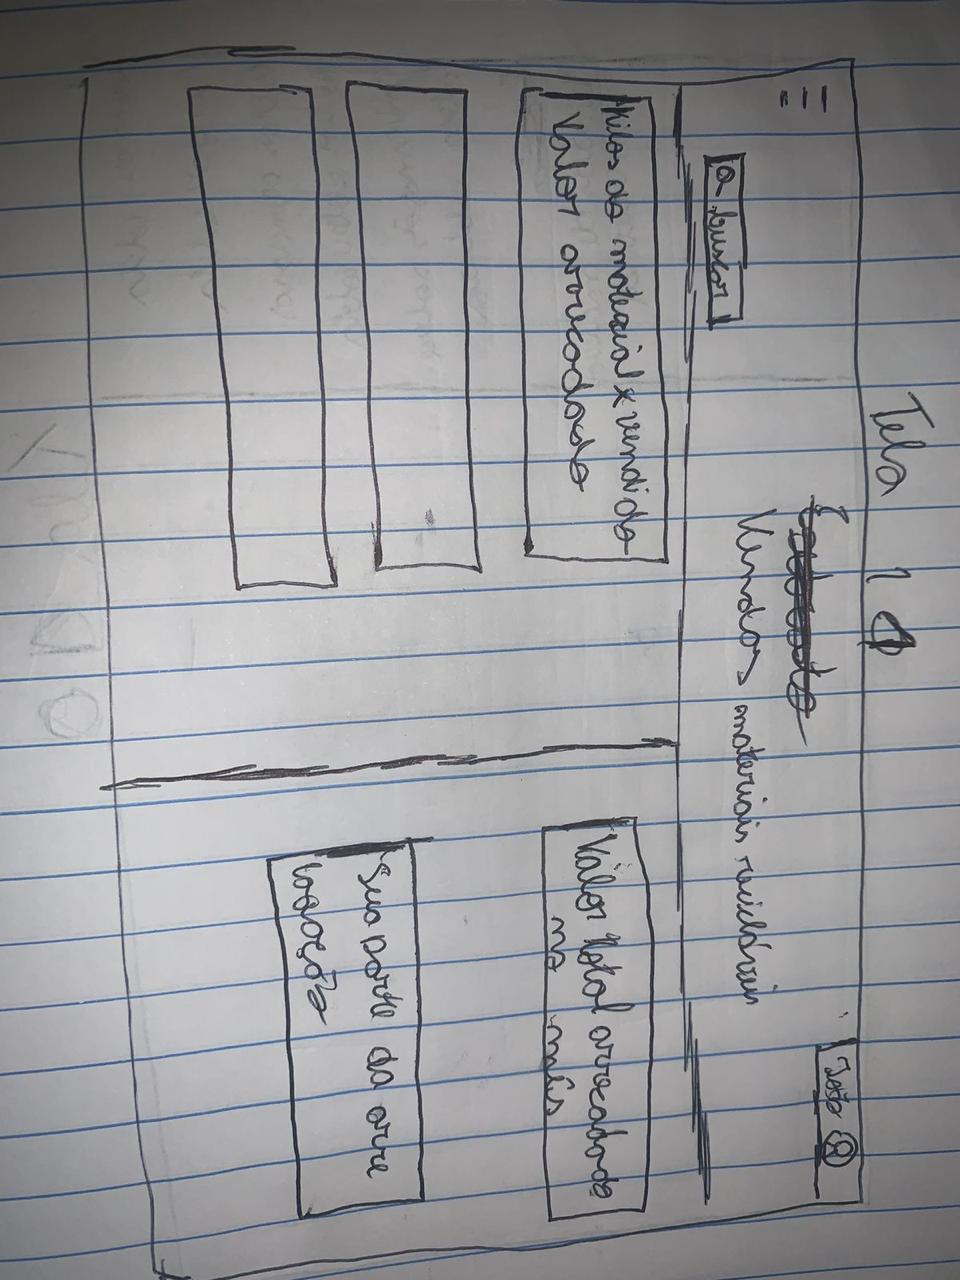 Tela 1
João
Vendas materiais recicláveis
Q buscar
Kilos de material x vendido
Valor arrecadado
Valor total arrecadado
no mês
Sua parte da arre
cadação